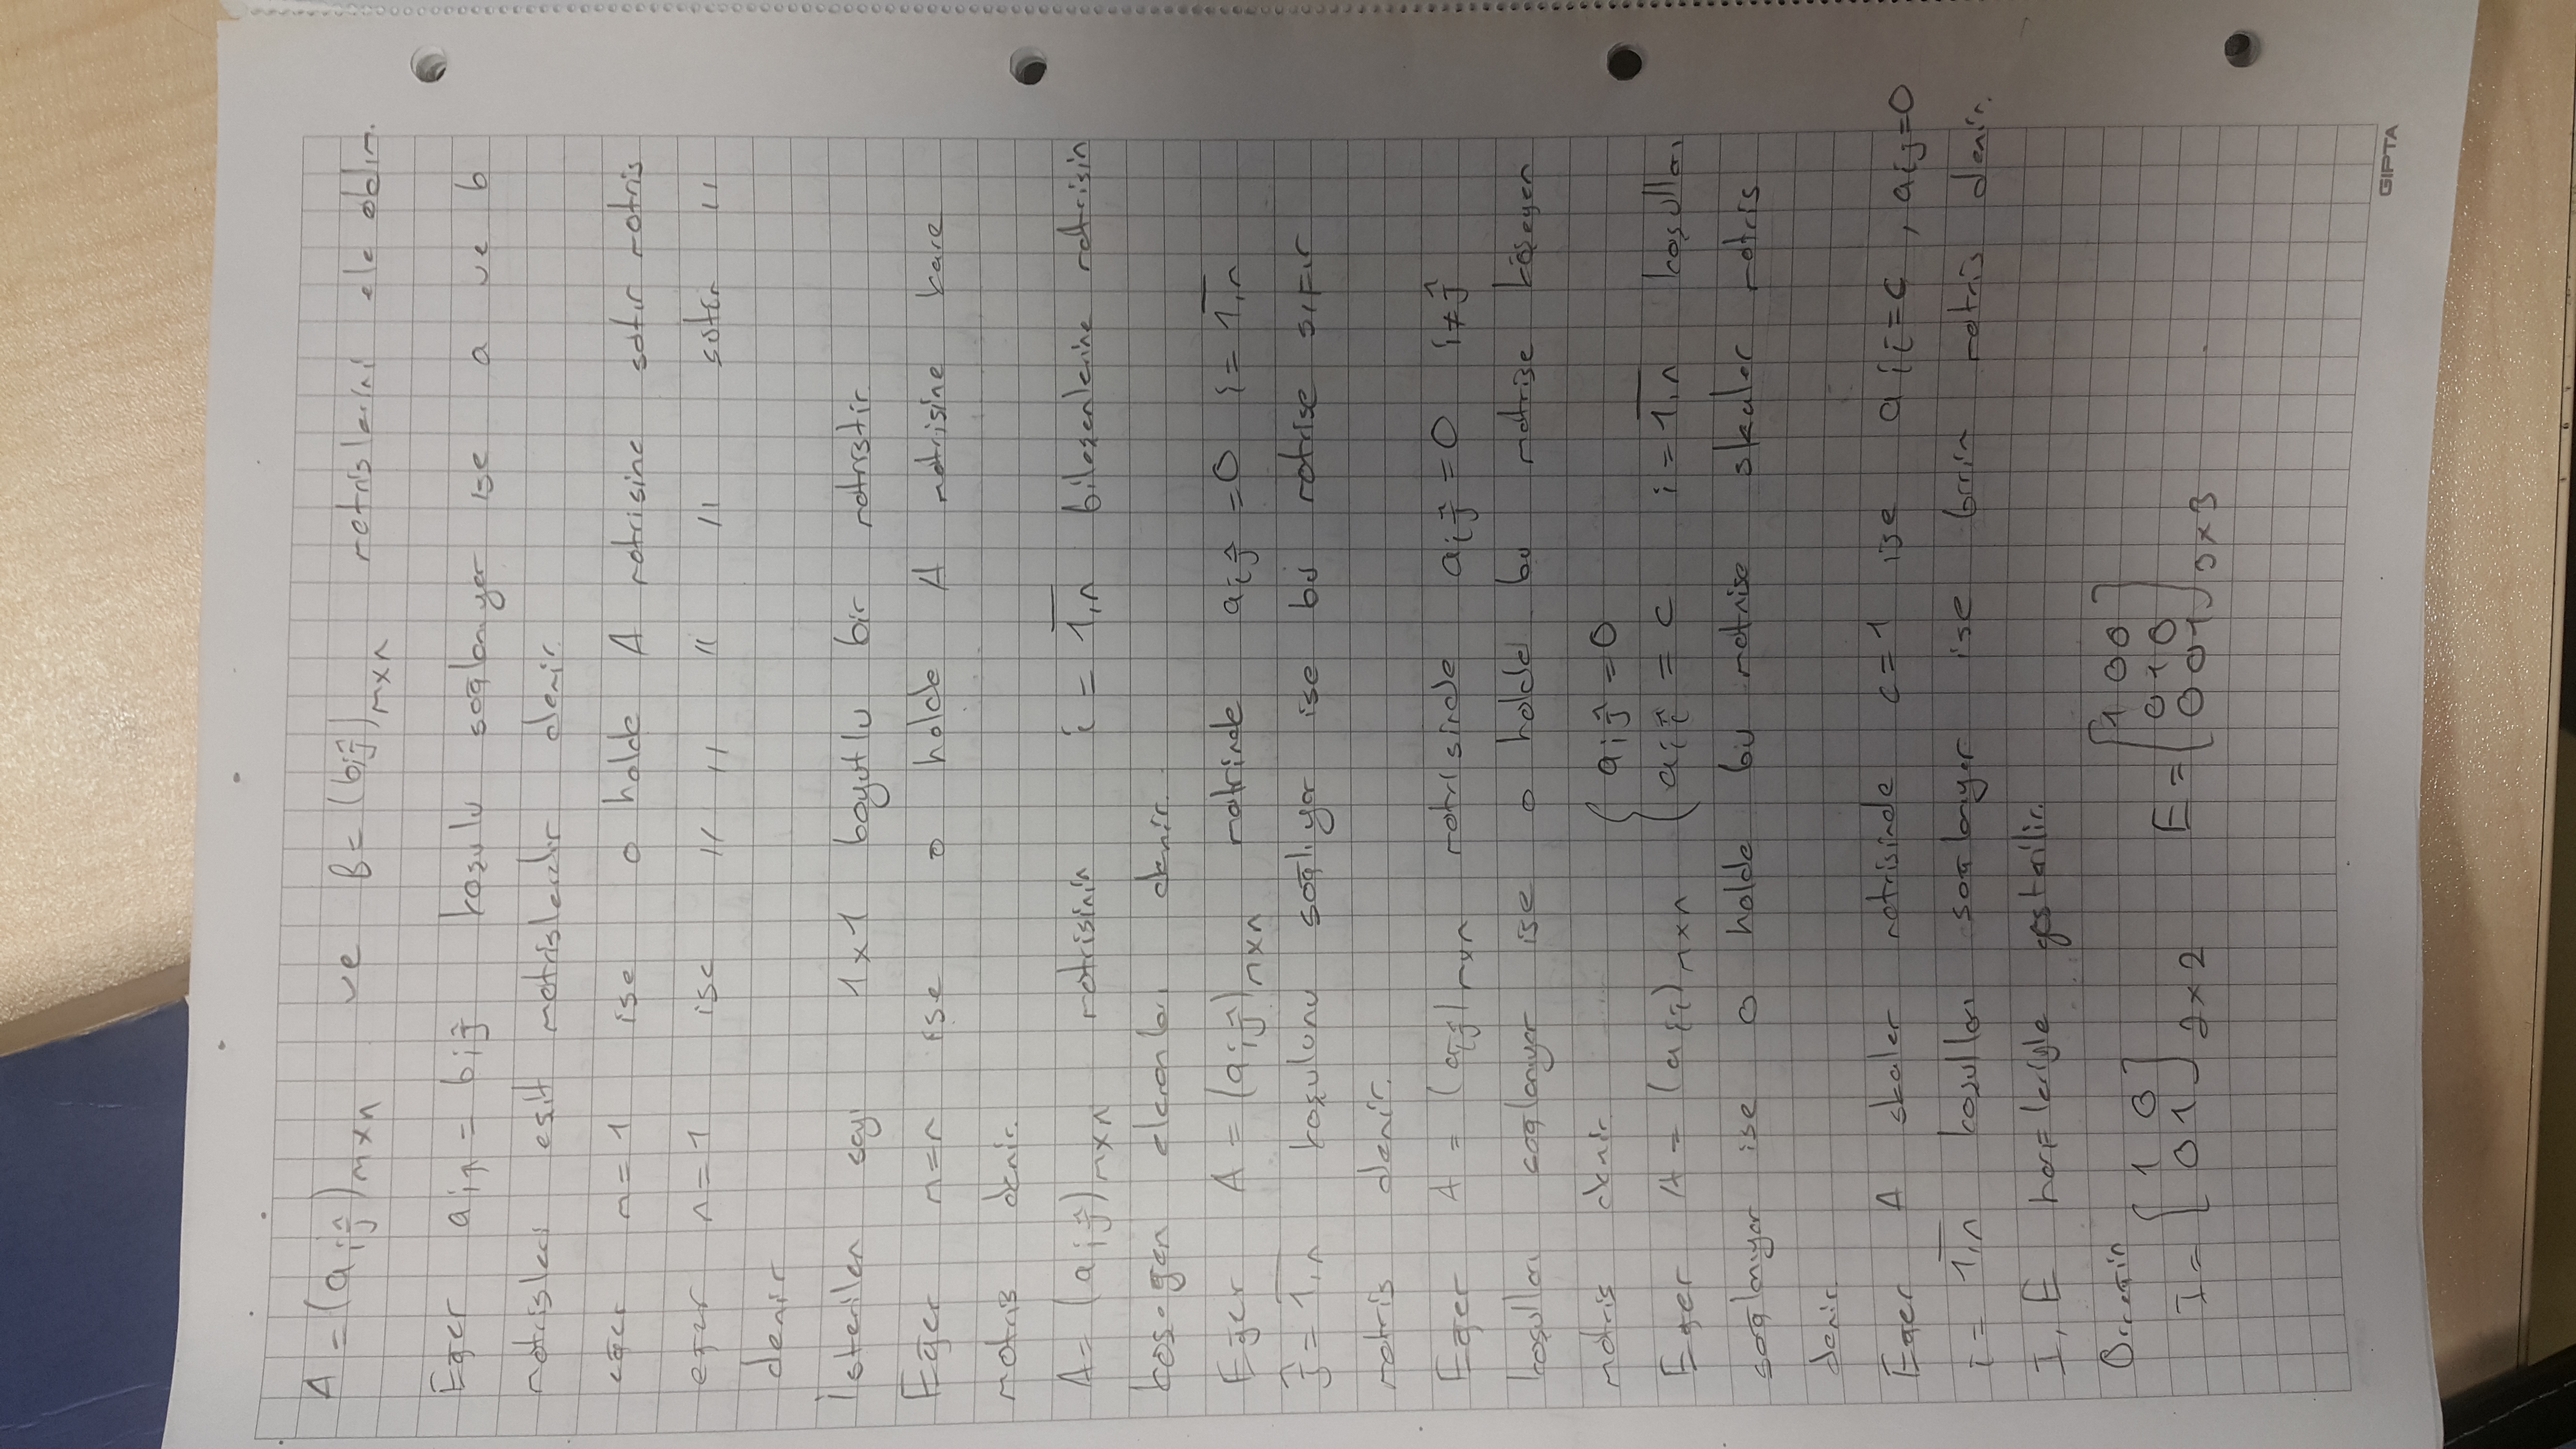 A = (aij)mxn ve B = (bij)mxn matrislerini ele alalım.
Eğer aij = bij koşulu sağlanıyor ise a ve b
matrisleri eşit matrislerdir denir.
eğer m=1 ise o halde A matrisine satır matris
eğer n=1 ise " " " " sütün "
denir
İsterilen sayı 1x1 boyutlu bir matristir.
Eğer m=n ise o halde A matrisine kare
matris denir.
A = (aij)mxn matrisinin i = 1,n bileşenlerine matrisin
köşegen elemanları denir.
Eğer A = (aij)mxn matrinde aij = 0 i = 1,n
j = 1,n koşulunu sağlıyor ise bu matrise sıfır
matris denir.
Eğer A = (aij)nxn matrisinde aij = 0 i≠j
koşulları sağlanıyor ise o halde bu matrise köşegen
matris denir. { aij = 0
Eğer A = (aij)nxn { aii = c i = 1,n koşulları
sağlanıyor ise o halde bu matrise skaler matris
denir.
Eğer A skaler matrisinde c=1 ise aii=c, aij=0
i = 1,n koşulları sağlanıyor ise birim matris denir.
I, E harfleriyle gösterilir.
Örneğin
I = [1 0
0 1] 2x2 E = [1 0 0
0 1 0
0 0 1] 3x3
GIPTA